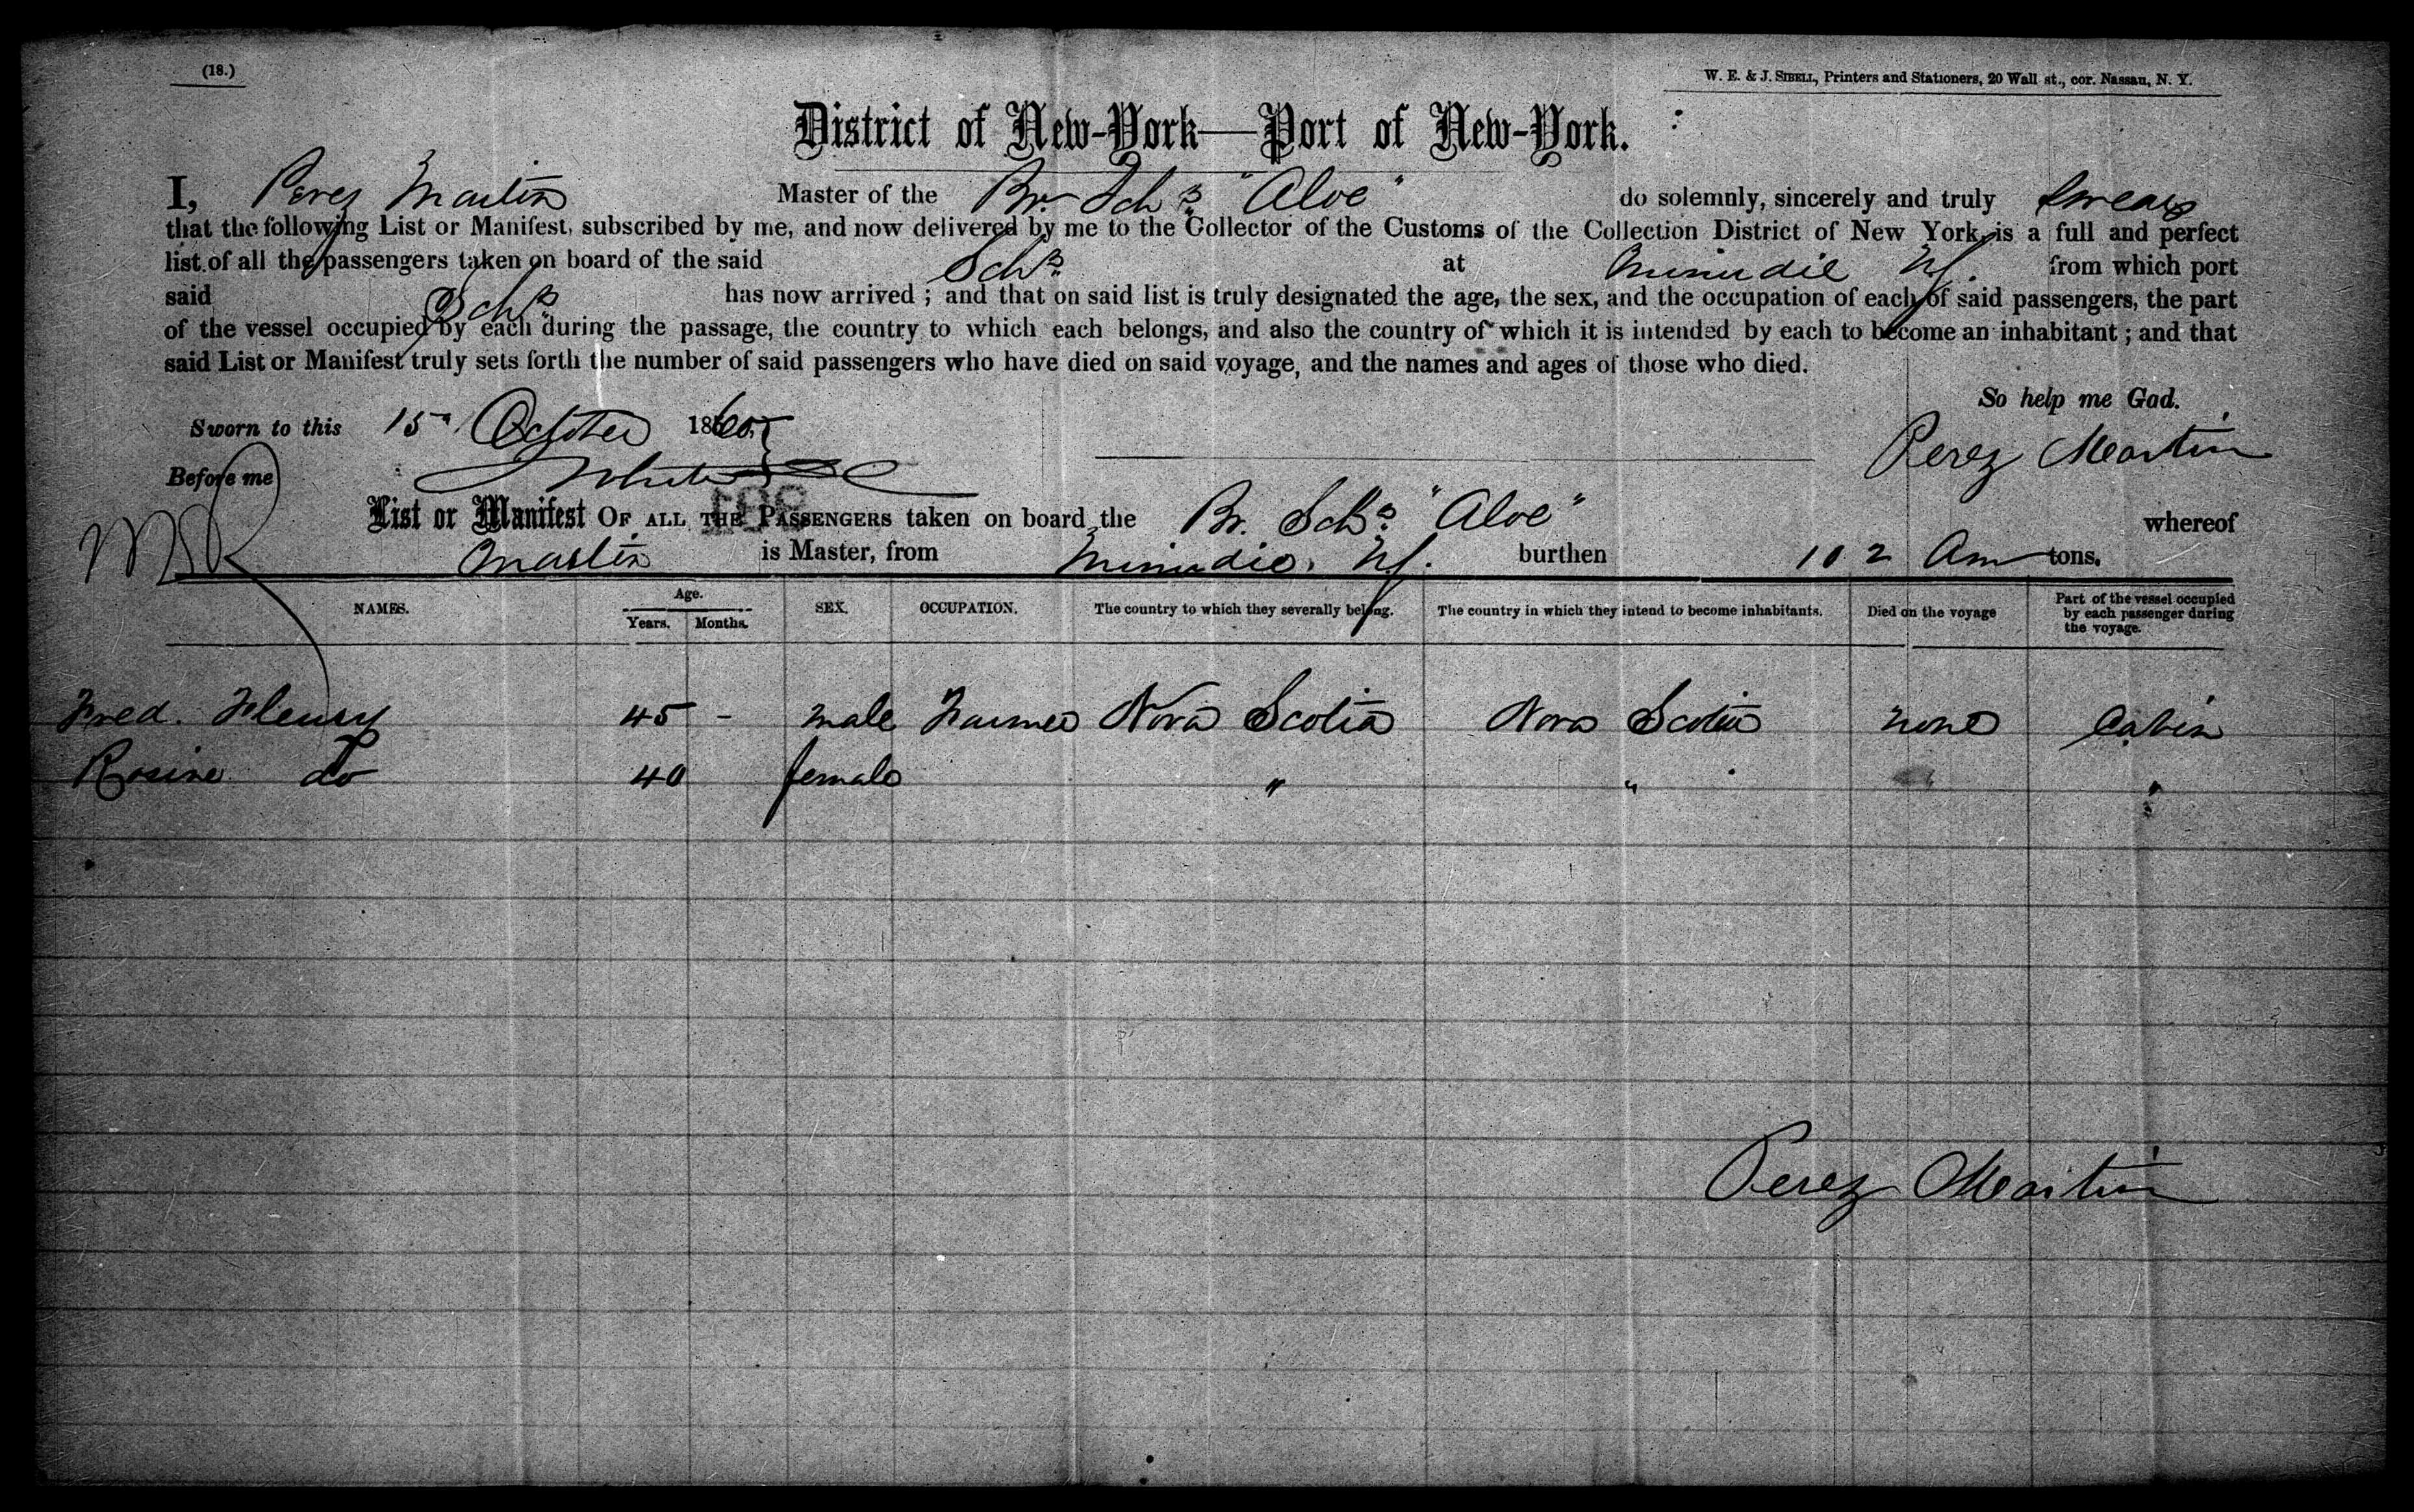 (18.)
W. E. & J. SIBELL, Printers and Stationers, 20 Wall st., cor. Nassau, N. Y.
District of New-York—Port of New-York.
I, Perez Martin Master of the Br. Schr. "Aloe" do solemnly, sincerely and truly swear
that the following List or Manifest, subscribed by me, and now delivered by me to the Collector of the Customs of the Collection District of New York, is a full and perfect
list of all the passengers taken on board of the said Schr. at Minudie NS. from which port
said Schr. has now arrived ; and that on said list is truly designated the age, the sex, and the occupation of each of said passengers, the part
of the vessel occupied by each during the passage, the country to which each belongs, and also the country of which it is intended by each to become an inhabitant ; and that
said List or Manifest truly sets forth the number of said passengers who have died on said voyage, and the names and ages of those who died.
So help me God.
Sworn to this 15 October 1865
Perez Martin
Before me
List or Manifest OF ALL THE PASSENGERS taken on board the Br. Schr. "Aloe" whereof
Martin is Master, from Minudie, NS. burthen 102 Am tons.
NAMES. Age. Years. Months. SEX. OCCUPATION. The country to which they severally belong. The country in which they intend to become inhabitants. Died on the voyage Part of the vessel occupied by each passenger during the voyage.
Fred. Fleury 45 - male Farmer Nova Scotia Nova Scotia none Cabin
Rosine do 40 female " " "
Perez Martin